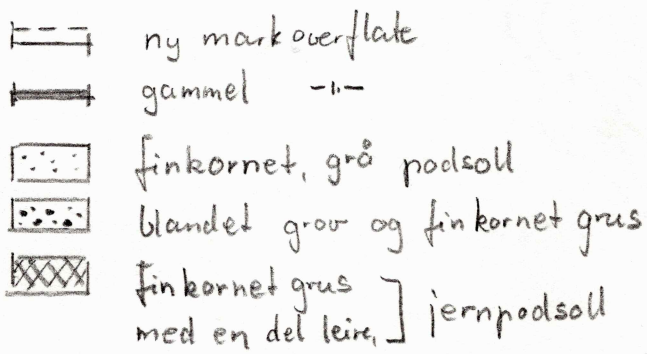 ny markoverflate
gammel -"-
finkornet, grå podsoll
blandet grov og finkornet grus
finkornet grus
med en del leire, ] jernpodsoll